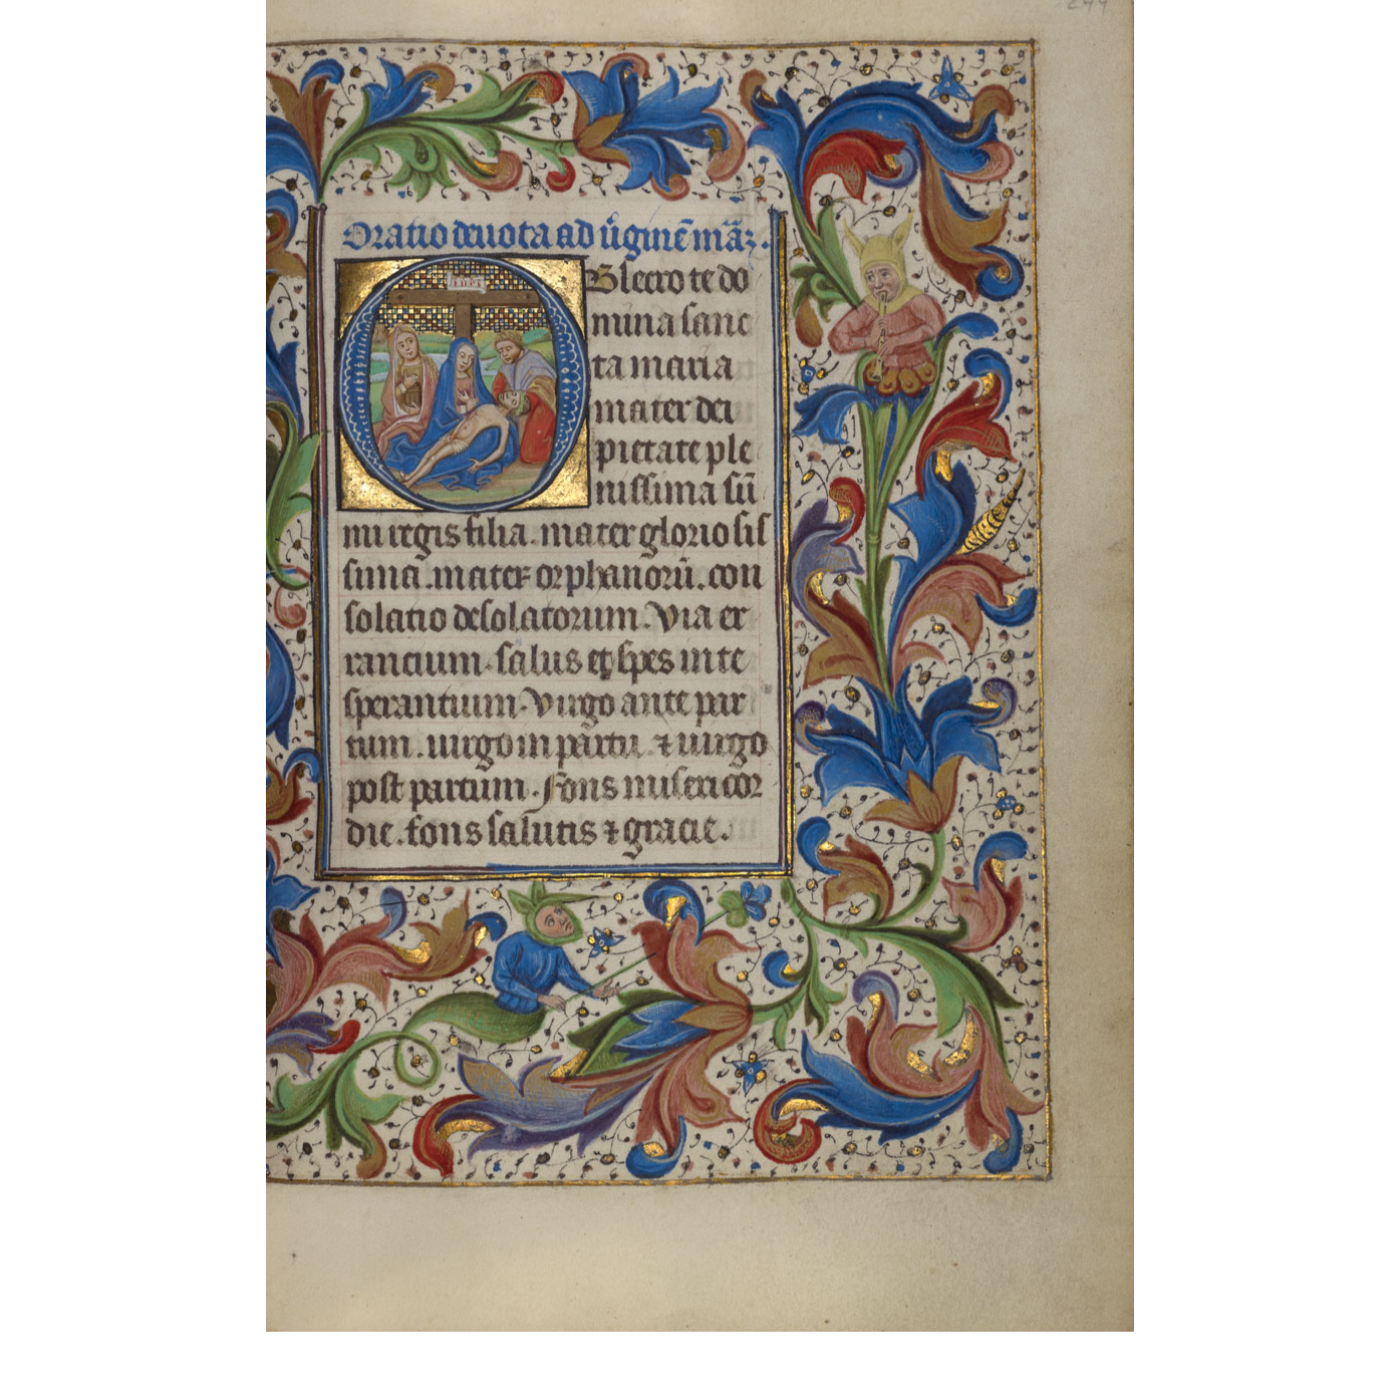 244
Oratio deuota ad v̊ginē mãz.
Obsecro te do
mina sanc
ta maria
mater dei
pietate ple
nissima sū
mi regis filia. mater gloriosis
sima. mater orphanorū. con
solatio desolatorum. Via er
rancium. salus et spes in te
sperantium. Virgo ante par
tum. uirgo in partu. ⁊ uirgo
post partum. Fons misericor
die. fons salutis ⁊ gracie.